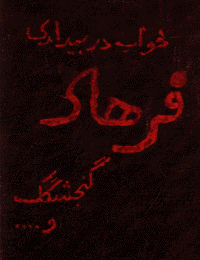 خواب در بیداری
فرهاد
گنجشگک
و....